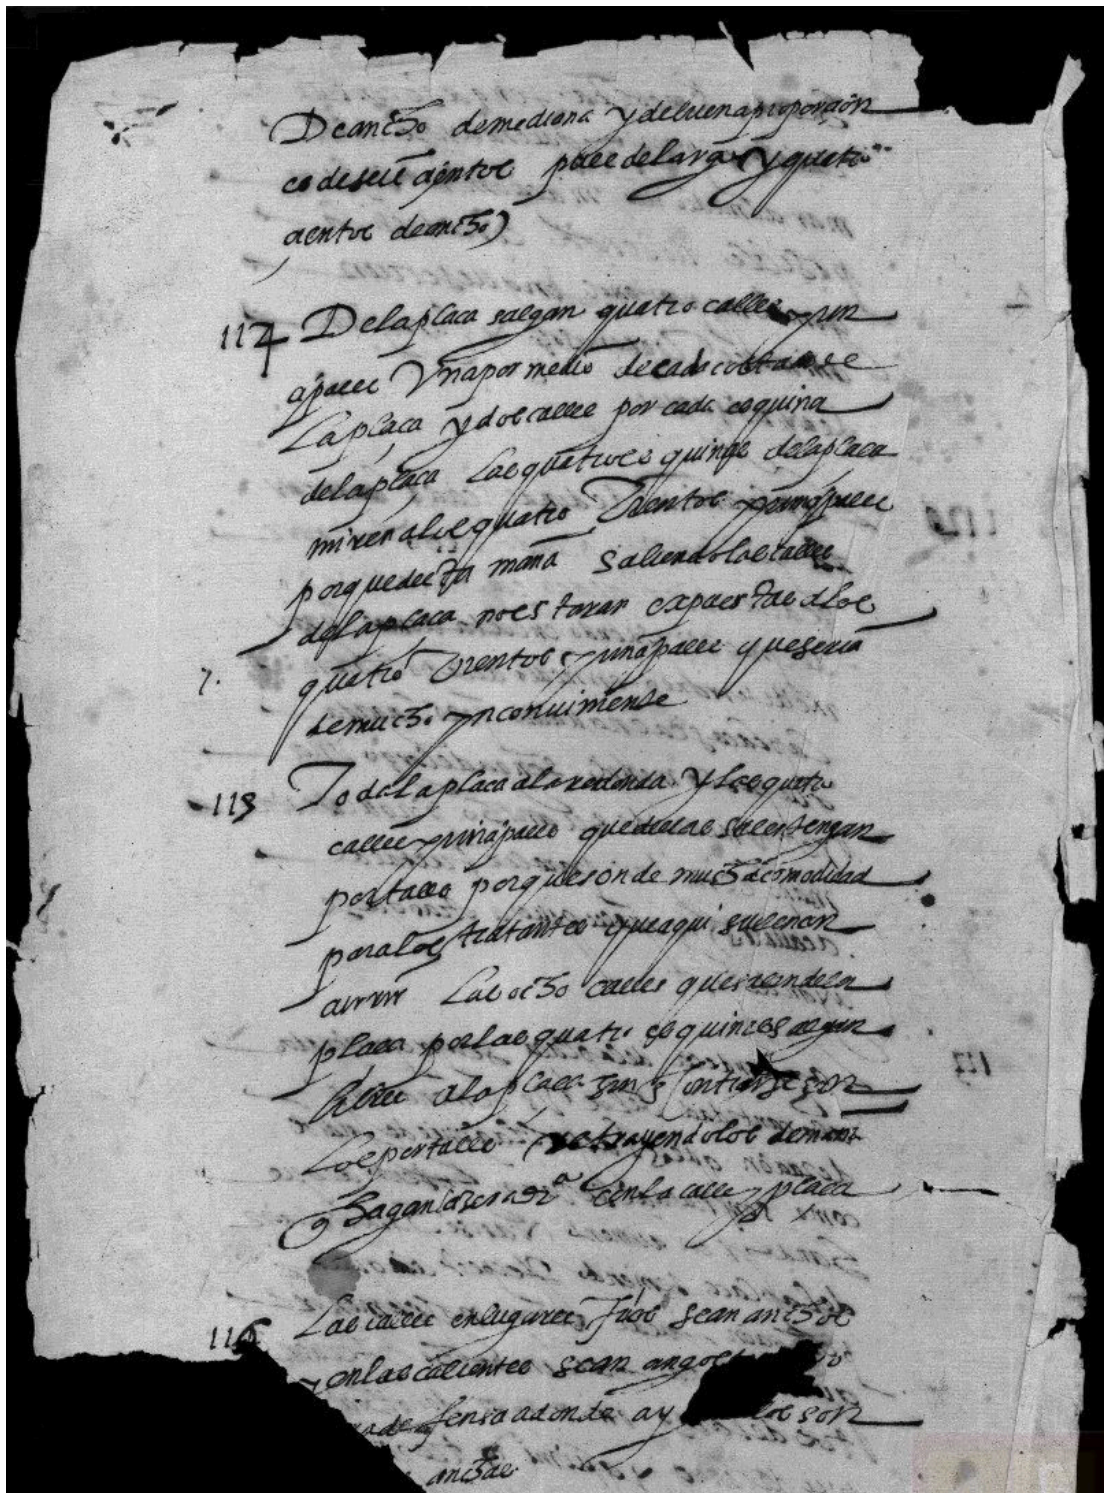 De ancho de mediana y de buena proporción
es de seiscientos pies de largo y quatro
cientos de ancho)
112 De la placa salgan quatro calles prin
cipales Vna por medio de cada costado de
La placa y dos calles por cada esquina
de la placa Las quatro esquinas de la placa
miren a los quatro Vientos principales
porque desta manª Saliendo las calles
de la placa no estaran expuestas a los
quatro Vientos principales que seria
de mucho ynconuiniente
113 Toda la placa a la redonda y las quatro
calles principales que dellas salen tengan
portales porque son de mucha comodidad
para los tratantes que aqui suelen con
currir Las ocho calles que salen de la
placa por las quatro esquinas salgan
libres a la placa sin encontrarse con
Los portales retrayendolos de manª
q hagan la zera drª con la calle y placa
116 Las calles en lugares frios sean anchas
y en las calientes sean angostas
de fensa a donde ay los son
anchas